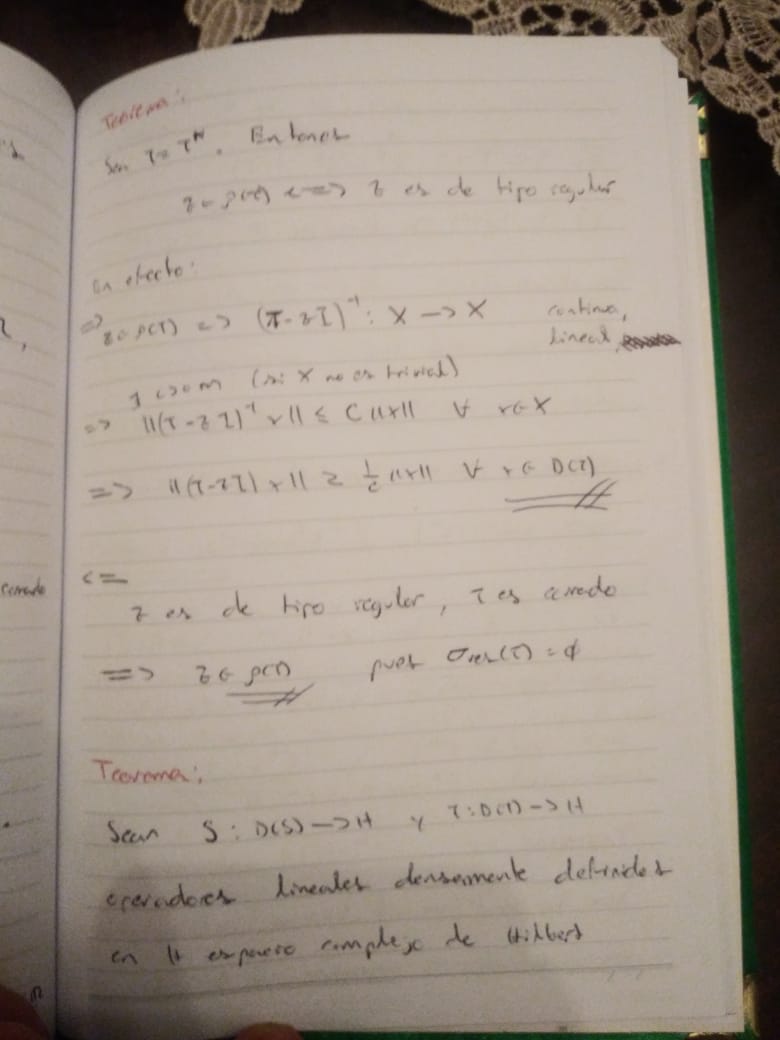 Teorema:
Sea T = T*. Entonces
z ∈ ρ(T) <=> z es de tipo regular
En efecto:
=>
z ∈ ρ(T) => (T-zI)⁻¹ : X -> X continua,
lineal,
∃ C>0 m (si X no es trivial)
=> ||(T-zI)⁻¹x|| ≤ C||x|| ∀ x ∈ X
=> ||(T-zI)x|| ≥ 1/C ||x|| ∀ x ∈ D(T)
<=
z es de tipo regular, T es cerrado
=> z ∈ ρ(T) pues σres(T) = ϕ
Teorema:
Sean S : D(S) -> H y T : D(T) -> H
operadores lineales densamente definidos
en H espacio complejo de Hilbert
cerrado